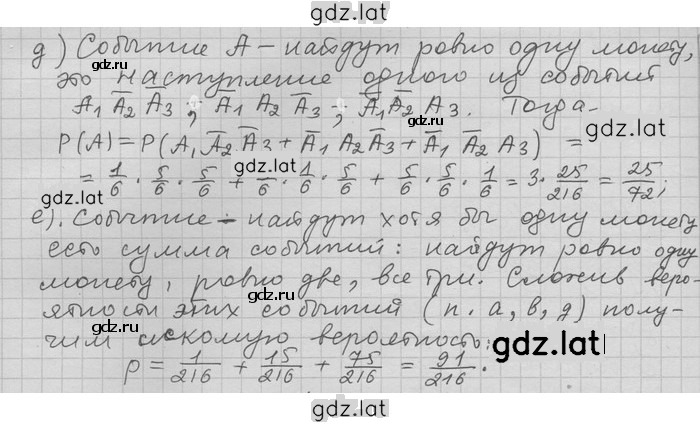 gdz.lat
д) Событие A – найдут ровно одну монету,
это наступление одного из событий
gdz.lat
A₁ A̅₂ A̅₃ ; A̅₁ A₂ A̅₃ ; A̅₁ A̅₂ A₃. Тогда-
gdz.lat
P(A) = P(A₁ A̅₂ A̅₃ + A̅₁ A₂ A̅₃ + A̅₁ A̅₂ A₃) =
gdz.lat gdz.lat
= 1/6 · 5/6 · 5/6 + 5/6 · 1/6 · 5/6 + 5/6 · 5/6 · 1/6 = 3 · 25/216 = 25/72;
gdz.lat gdz.lat
е). Событие – найдут хотя бы одну монету
есть сумма событий: найдут ровно одну
gdz.lat gdz.lat
монету, ровно две, все три. Сложив веро-
ятности этих событий (п. а, в, д) полу-
gdz.lat gdz.lat
чим искомую вероятность:
p = 1/216 + 15/216 + 75/216 = 91/216.
gdz.lat
gdz.lat